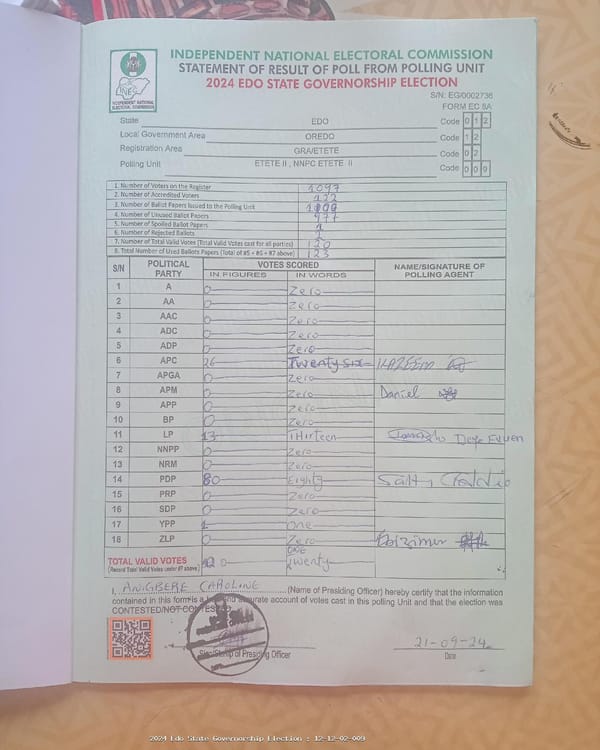 INDEPENDENT NATIONAL ELECTORAL COMMISSION
STATEMENT OF RESULT OF POLL FROM POLLING UNIT
2024 EDO STATE GOVERNORSHIP ELECTION
INEC
INDEPENDENT NATIONAL ELECTORAL COMMISSION
S/N: EG/0002736
FORM EC 8A
State EDO Code 0 1 2
Local Government Area OREDO Code 1 2
Registration Area GRA/ETETE Code 0 2
Polling Unit ETETE II , NNPC ETETE II Code 0 0 9
1. Number of Voters on the Register 1097
2. Number of Accredited Voters
3. Number of Ballot Papers Issued to the Polling Unit
4. Number of Unused Ballot Papers 977
5. Number of Spoiled Ballot Papers 1
6. Number of Rejected Ballots 2
7. Number of Total Valid Votes (Total Valid Votes cast for all parties) 120
8. Total Number of Used Ballots Papers (Total of #5 + #6 + #7 above) 123
S/N POLITICAL PARTY VOTES SCORED NAME/SIGNATURE OF POLLING AGENT
IN FIGURES IN WORDS
1 A 0 Zero
2 AA 0 Zero
3 AAC 0 Zero
4 ADC 0 Zero
5 ADP 0 Zero
6 APC 26 Twenty six KAZEEM
7 APGA 0 Zero
8 APM 0 Zero Daniel
9 APP 0 Zero
10 BP 0 Zero
11 LP 13 THirteen
12 NNPP 0 Zero
13 NRM 0 Zero
14 PDP 80 Eighty
15 PRP 0 Zero
16 SDP 0 Zero
17 YPP 1 One
18 ZLP 0 Zero
TOTAL VALID VOTES 120 one Twenty
(Record Total Valid Votes under #7 above)
I, ANIGBERE CAROLINE (Name of Presiding Officer) hereby certify that the information
contained in this form is a true and accurate account of votes cast in this polling Unit and that the election was
CONTESTED/NOT CONTESTED
Sign/Stamp of Presiding Officer
21-09-24
Date
2024 Edo State Governorship Election : 12-12-02-009